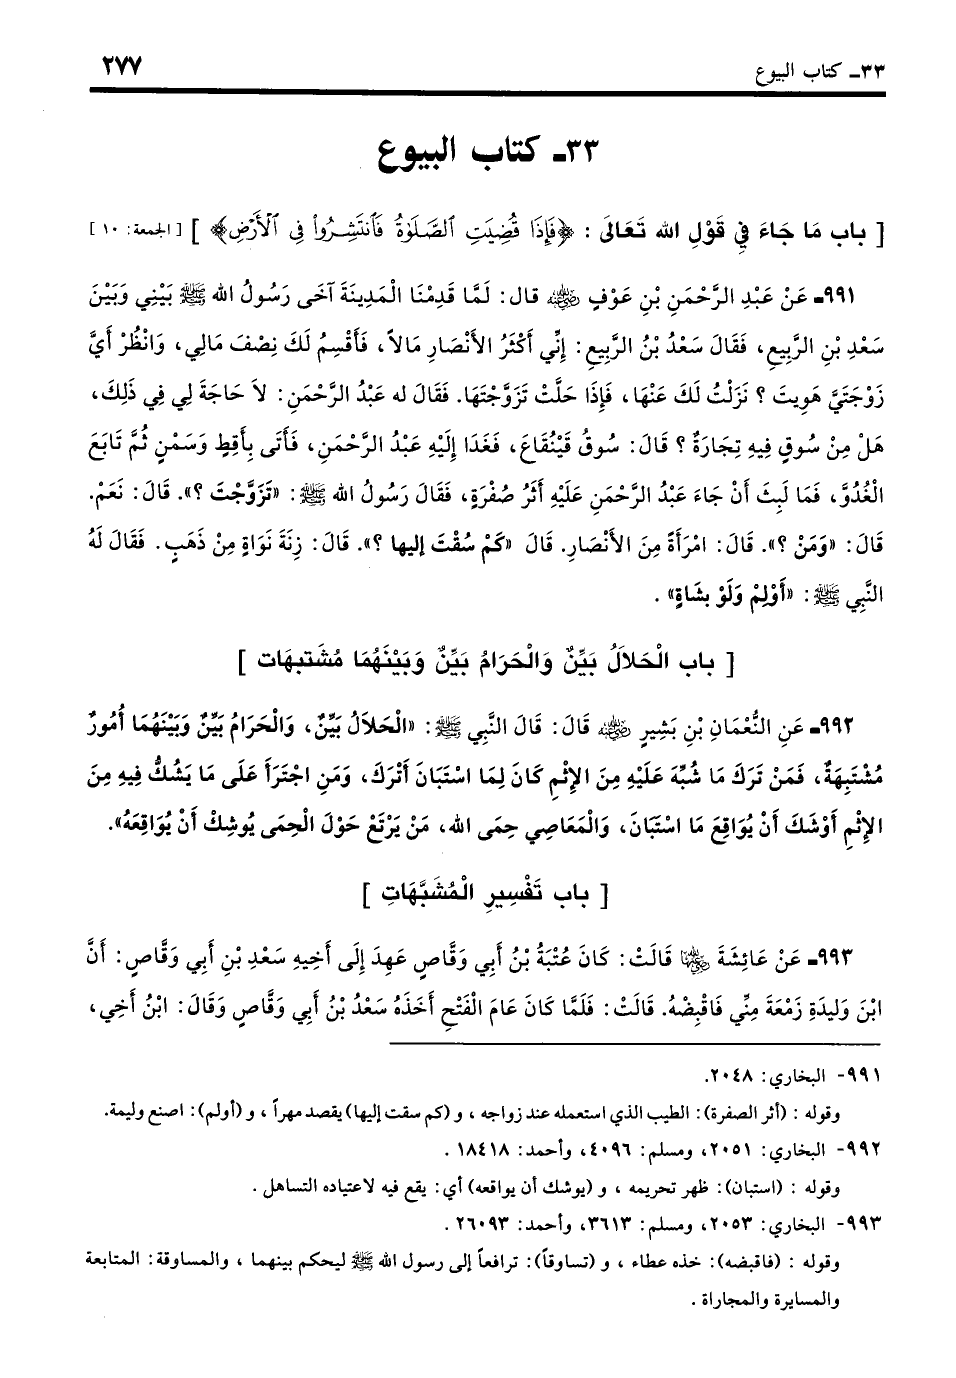 ٣٣ـ كتاب البيوع ٢٧٧
٣٣ـ كتاب البيوع
[ باب مَا جَاءَ فِي قَوْلِ الله تَعَالَى : ﴿فَإِذَا قُضِيَتِ ٱلصَّلَوٰةُ فَٱنتَشِرُوا۟ فِى ٱلْأَرْضِ﴾ ] [ الجمعة: ١٠ ]
٩٩١ـ عَنْ عَبْدِ الرَّحْمَنِ بْنِ عَوْفٍ رضي الله عنه قال: لَمَّا قَدِمْنَا الْمَدِينَةَ آخَى رَسُولُ الله ﷺ بَيْنِي وَبَيْنَ
سَعْدِ بْنِ الرَّبِيعِ، فَقَالَ سَعْدُ بْنُ الرَّبِيعِ: إِنِّي أَكْثَرُ الأَنْصَارِ مَالاً، فَأَقْسِمُ لَكَ نِصْفَ مَالِي، وَانْظُرْ أَيَّ
زَوْجَتَيَّ هَوِيتَ ؟ نَزَلْتُ لَكَ عَنْهَا، فَإِذَا حَلَّتْ تَزَوَّجْتَهَا. فَقَالَ له عَبْدُ الرَّحْمَنِ: لاَ حَاجَةَ لِي فِي ذَلِكَ،
هَلْ مِنْ سُوقٍ فِيهِ تِجَارَةٌ ؟ قَالَ: سُوقُ قَيْنُقَاعَ، فَغَدَا إِلَيْهِ عَبْدُ الرَّحْمَنِ، فَأَتَى بِأَقِطٍ وَسَمْنٍ ثُمَّ تَابَعَ
الْغُدُوَّ، فَمَا لَبِثَ أَنْ جَاءَ عَبْدُ الرَّحْمَنِ عَلَيْهِ أَثَرُ صُفْرَةٍ، فَقَالَ رَسُولُ الله ﷺ: «تَزَوَّجْتَ ؟». قَالَ: نَعَمْ.
قَالَ: «وَمَنْ ؟». قَالَ: امْرَأَةً مِنَ الأَنْصَارِ. قَالَ «كَمْ سُقْتَ إليها ؟». قَالَ: زِنَةَ نَوَاةٍ مِنْ ذَهَبٍ. فَقَالَ لَهُ
النَّبِي ﷺ: «أَوْلِمْ وَلَوْ بِشَاةٍ» .
[ باب الْحَلاَلُ بَيِّنٌ وَالْحَرَامُ بَيِّنٌ وَبَيْنَهُمَا مُشْتَبِهَات ]
٩٩٢ـ عَنِ النُّعْمَانِ بْنِ بَشِيرٍ رضي الله عنه قَالَ: قَالَ النَّبِي ﷺ: «الْحَلاَلُ بَيِّنٌ، وَالْحَرَامُ بَيِّنٌ وَبَيْنَهُمَا أُمُورٌ
مُشْتَبِهَةٌ، فَمَنْ تَرَكَ مَا شُبِّهَ عَلَيْهِ مِنَ الإِثْمِ كَانَ لِمَا اسْتَبَانَ أَتْرَكَ، وَمَنِ اجْتَرَأَ عَلَى مَا يَشُكُّ فِيهِ مِنَ
الإِثْمِ أَوْشَكَ أَنْ يُوَاقِعَ مَا اسْتَبَانَ، وَالْمَعَاصِي حِمَى الله، مَنْ يَرْتَعْ حَوْلَ الْحِمَى يُوشِكْ أَنْ يُوَاقِعَهُ».
[ باب تَفْسِيرِ الْمُشَبَّهَاتِ ]
٩٩٣ـ عَنْ عَائِشَةَ رضي الله عنها قَالَتْ: كَانَ عُتْبَةُ بْنُ أَبِي وَقَّاصٍ عَهِدَ إِلَى أَخِيهِ سَعْدِ بْنِ أَبِي وَقَّاصٍ: أَنَّ
ابْنَ وَلِيدَةِ زَمْعَةَ مِنِّي فَاقْبِضْهُ. قَالَتْ: فَلَمَّا كَانَ عَامَ الْفَتْحِ أَخَذَهُ سَعْدُ بْنُ أَبِي وَقَّاصٍ وَقَالَ: ابْنُ أَخِي،
٩٩١- البخاري: ٢٠٤٨.
وقوله : (أثر الصفرة): الطيب الذي استعمله عند زواجه ، و (كم سقت إليها) يقصد مهراً ، و (أولم): اصنع وليمة.
٩٩٢- البخاري: ٢٠٥١، ومسلم: ٤٠٩٦، وأحمد: ١٨٤١٨ .
وقوله : (استبان): ظهر تحريمه ، و (يوشك أن يواقعه) أي: يقع فيه لاعتياده التساهل .
٩٩٣- البخاري: ٢٠٥٣، ومسلم: ٣٦١٣، وأحمد: ٢٦٠٩٣ .
وقوله : (فاقبضه): خذه عطاء ، و (تساوقاً): ترافعاً إلى رسول الله ﷺ ليحكم بينهما ، والمساوقة: المتابعة
والمسايرة والمجاراة .